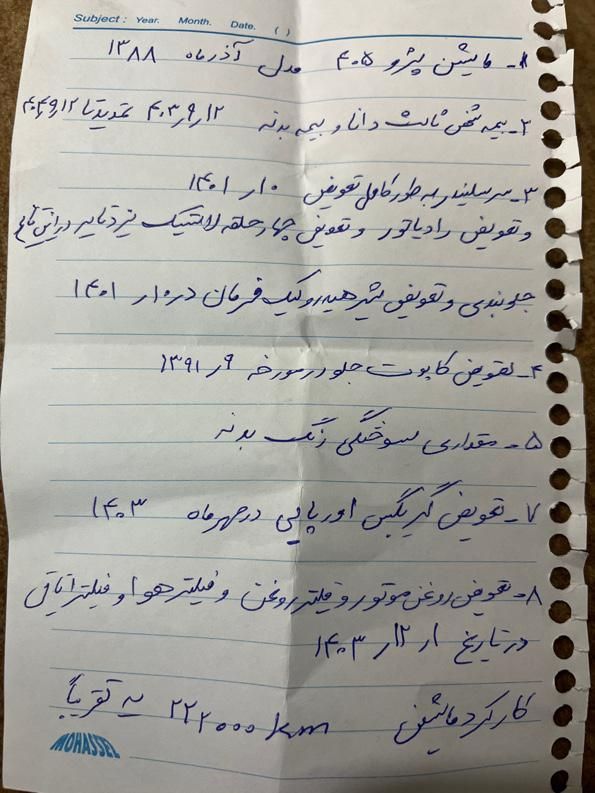 Subject: Year. Month. Date. ( )
۱- ماشین پژو ۴۰۵ مدل آذر ماه ۱۳۸۸
۲- بیمه شخص ثالث دانا و بیمه بدنه ۴۰۳٫۹٫۱۲ تمدید تا ۴۰۴٫۹٫۱۲
۳- سر سیلندر به طور کامل تعویض ۱۰ر ۱۴۰۱
و تعویض رادیاتور و تعویض چهار حلقه لاستیک یزد تایر در این تاریخ
جلوبندی و تعویض شیر هیدرولیک فرمان در ۱۰ر ۱۴۰۱
۴- تعویض کاپوت جلو در مورخه ۹ر ۱۳۹۱
۵- مقداری سوختگی رنگ بدنه
۷- تعویض گیربکس اورپایی در مهر ماه ۱۴۰۳
۸- تعویض روغن موتور و فیلتر روغن و فیلتر هوا و فیلتر اتاق
در تاریخ ۱ر ۱۲ر ۱۴۰۳
کارکرد ماشین 222000 km به تقریباً
MOHASSEL